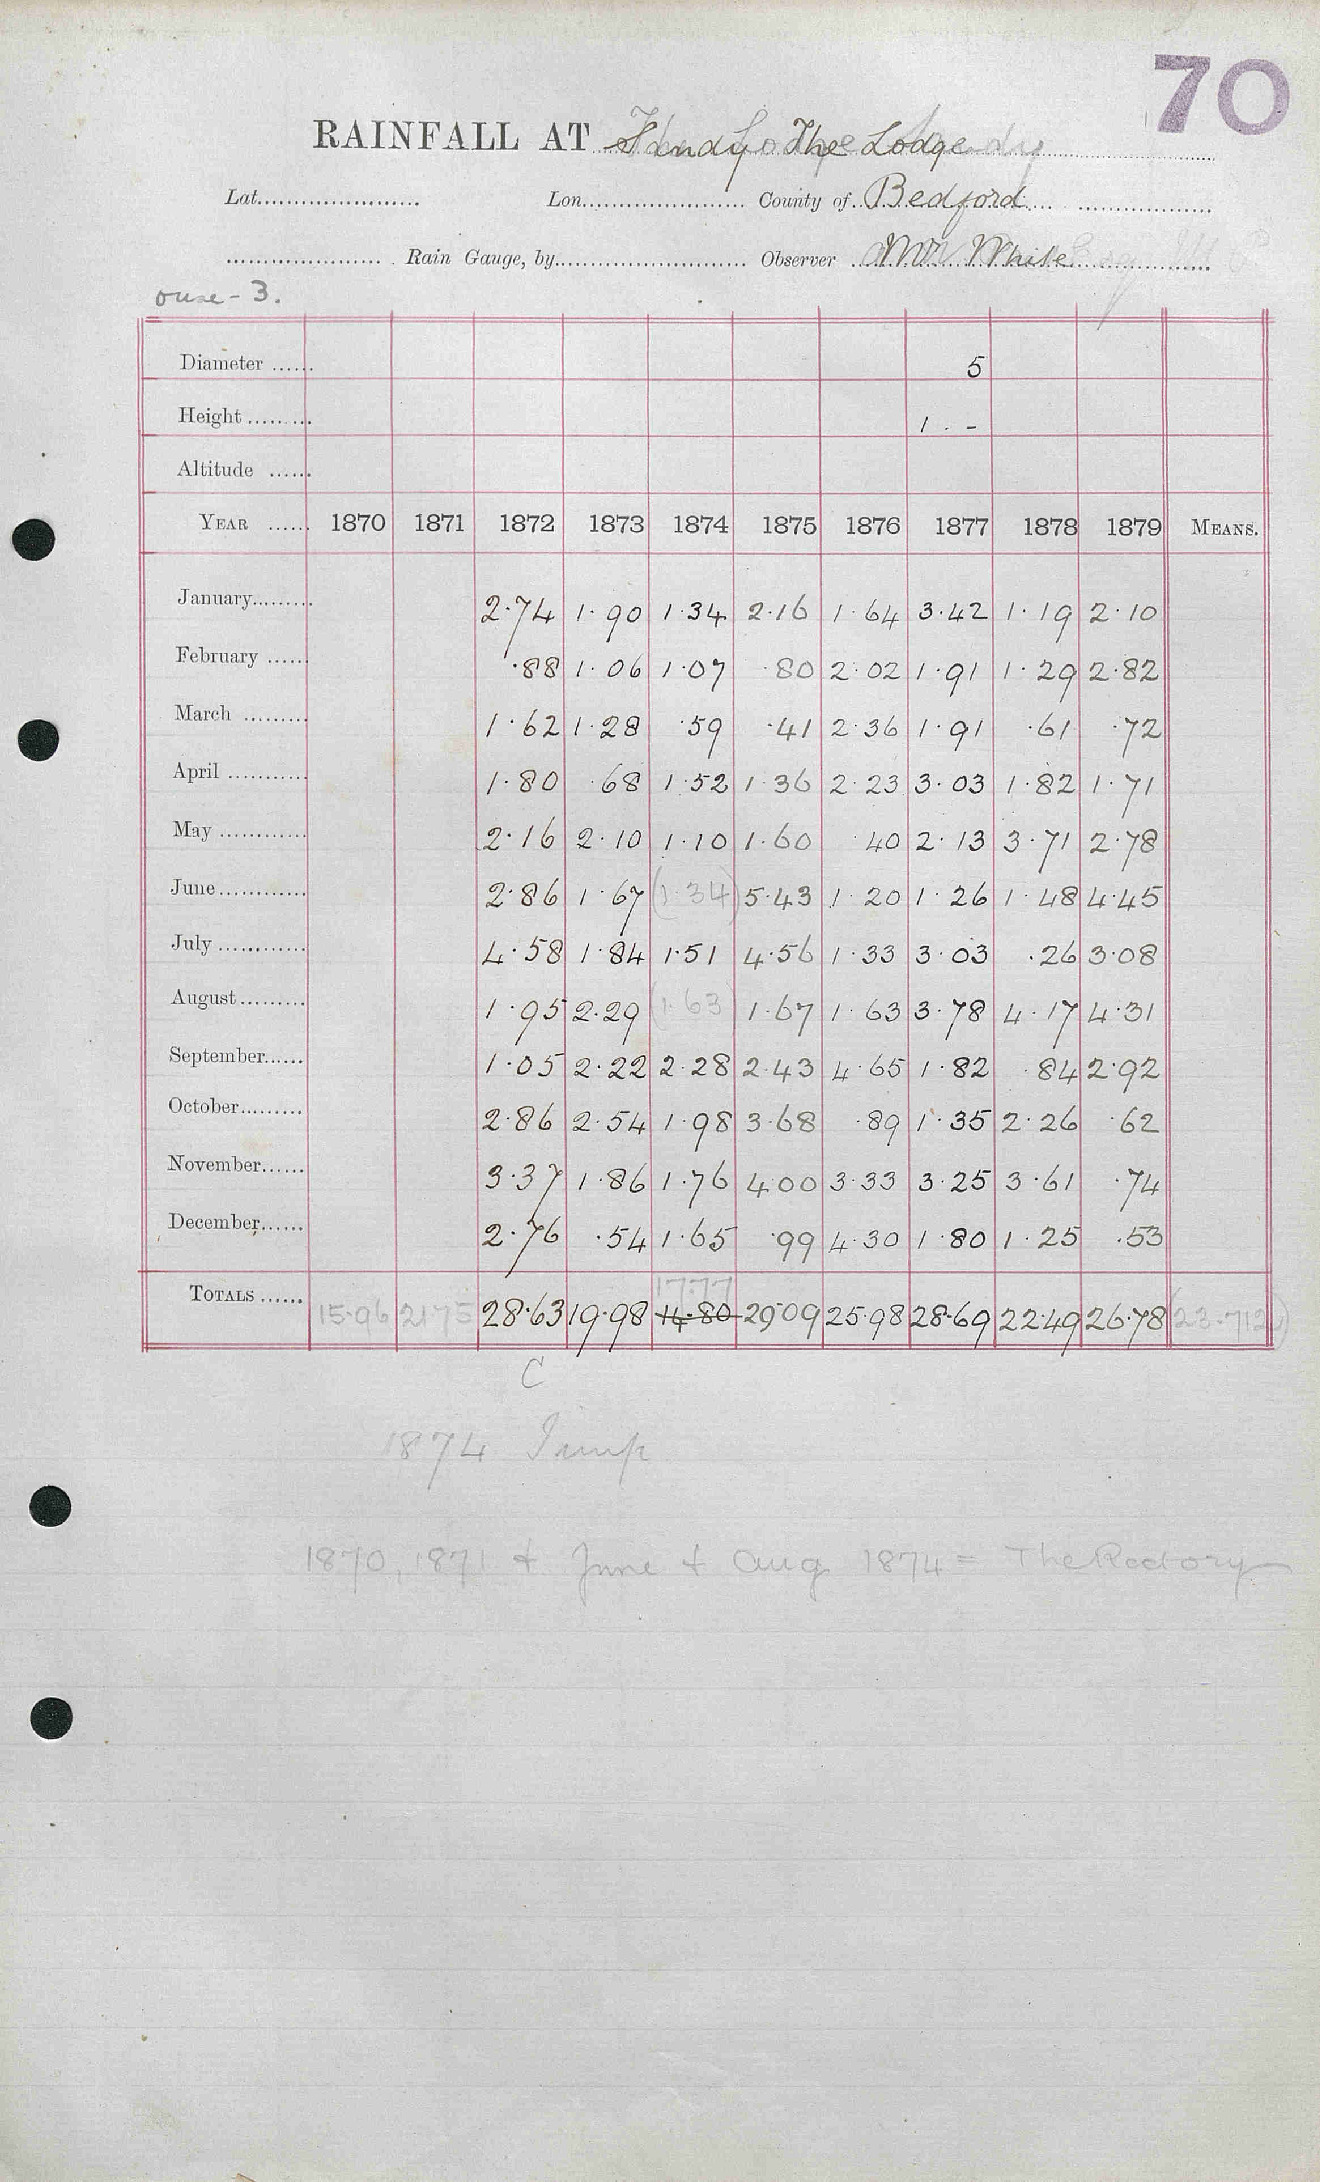 70
RAINFALL AT Sandy The Lodge
Lat. Lon. County of Bedford
Rain Gauge, by Observer Mr White
Ouse - 3.
Diameter ...... 5
Height ......... 1 . -
Altitude ......
YEAR ...... 1870 1871 1872 1873 1874 1875 1876 1877 1878 1879 MEANS.
January......... 2.74 1.90 1.34 2.16 1.64 3.42 1.19 2.10
February ...... .88 1.06 1.07 .80 2.02 1.91 1.29 2.82
March ......... 1.62 1.28 .59 .41 2.36 1.91 .61 .72
April ............ 1.80 .68 1.52 1.36 2.23 3.03 1.82 1.71
May ............ 2.16 2.10 1.10 1.60 .40 2.13 3.71 2.78
June............ 2.86 1.67 (1.34) 5.43 1.20 1.26 1.48 4.45
July ............ 4.58 1.84 1.51 4.56 1.33 3.03 .26 3.08
August......... 1.95 2.29 (1.63) 1.67 1.63 3.78 4.17 4.31
September...... 1.05 2.22 2.28 2.43 4.65 1.82 .84 2.92
October......... 2.86 2.54 1.98 3.68 .89 1.35 2.26 .62
November...... 3.37 1.86 1.76 4.00 3.33 3.25 3.61 .74
December...... 2.76 .54 1.65 .99 4.30 1.80 1.25 .53
17.77
TOTALS ...... 15.96 21.75 28.63 19.98 14.80 29.09 25.98 28.69 22.49 26.78 (23.712)
C
1874 Imp
1870, 1871 & June & Aug 1874 = The Rectory